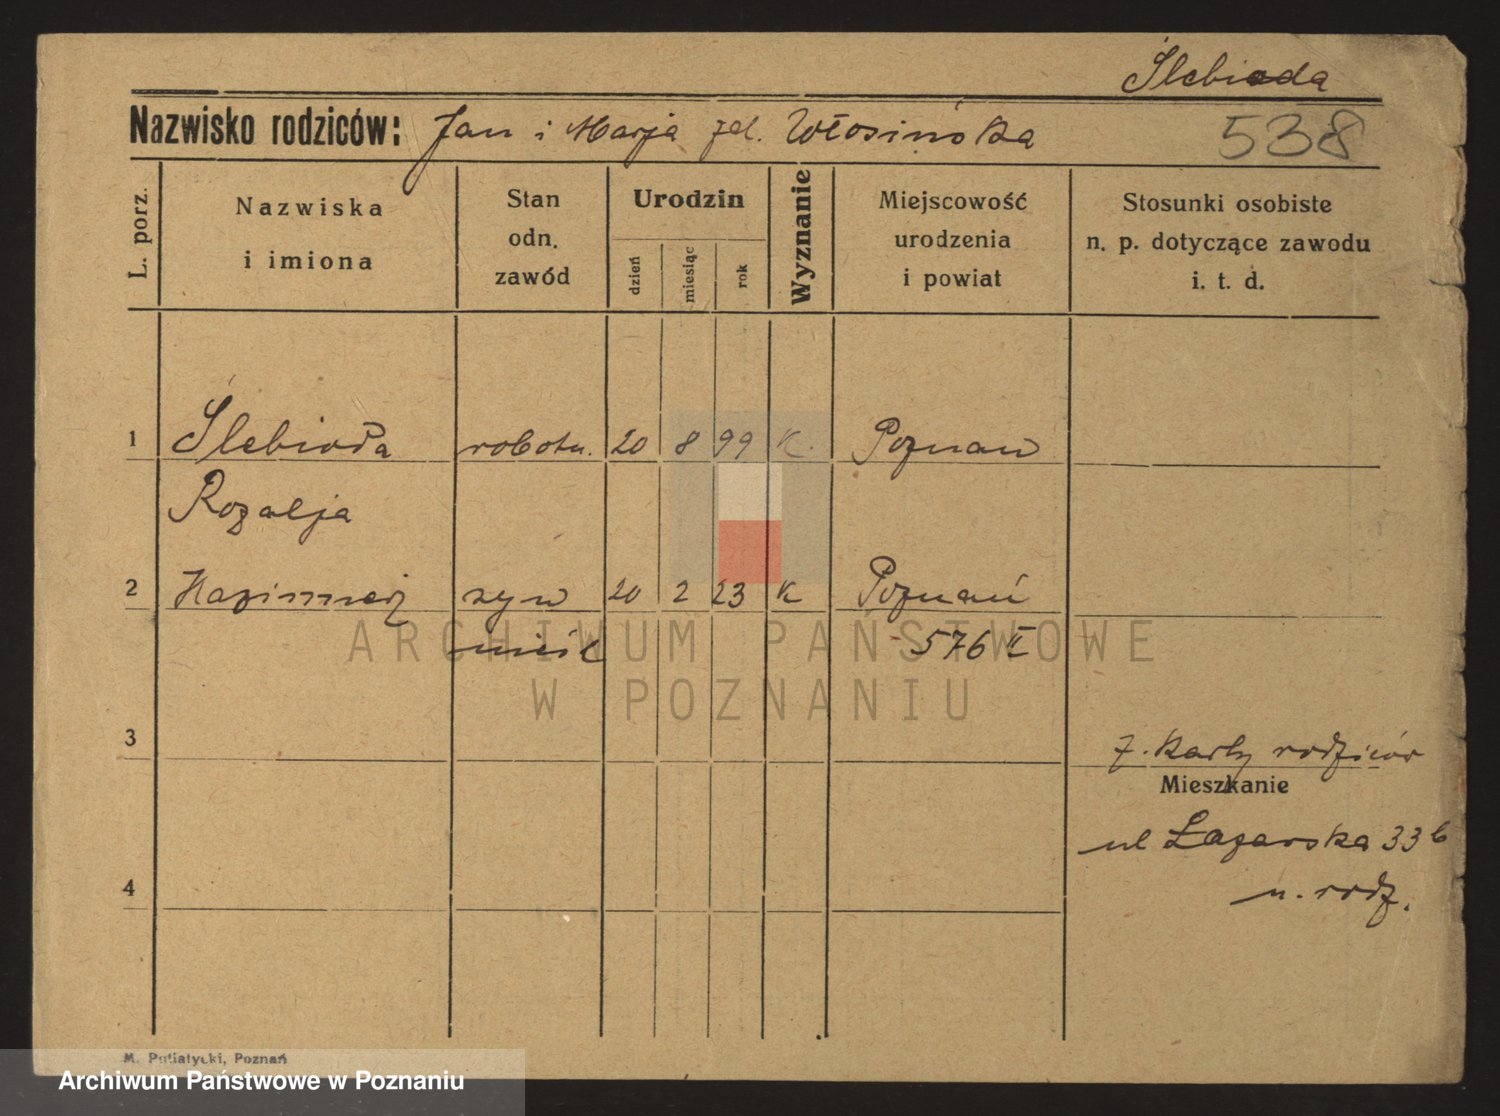 Ślebioda
Nazwisko rodziców: Jan i Marja zd. Włosińska 538
L. porz.
Nazwiska
i imiona
Stan
odn.
zawód
Urodzin
dzień
miesiąc
rok
Wyznanie
Miejscowość
urodzenia
i powiat
Stosunki osobiste
n. p. dotyczące zawodu
i. t. d.
1 Ślebioda robotn. 20 8 99 K. Poznań
Rozalja
2 Kazimierz syn 20 2 23 K Poznań
nieśl 576 II
ARCHIWUM PAŃSTWOWE
W POZNANIU
3
z. karty rodziców
Mieszkanie
ul Łazarska 33 b
4
u. rodz.
M. Putiatycki, Poznań
Archiwum Państwowe w Poznaniu